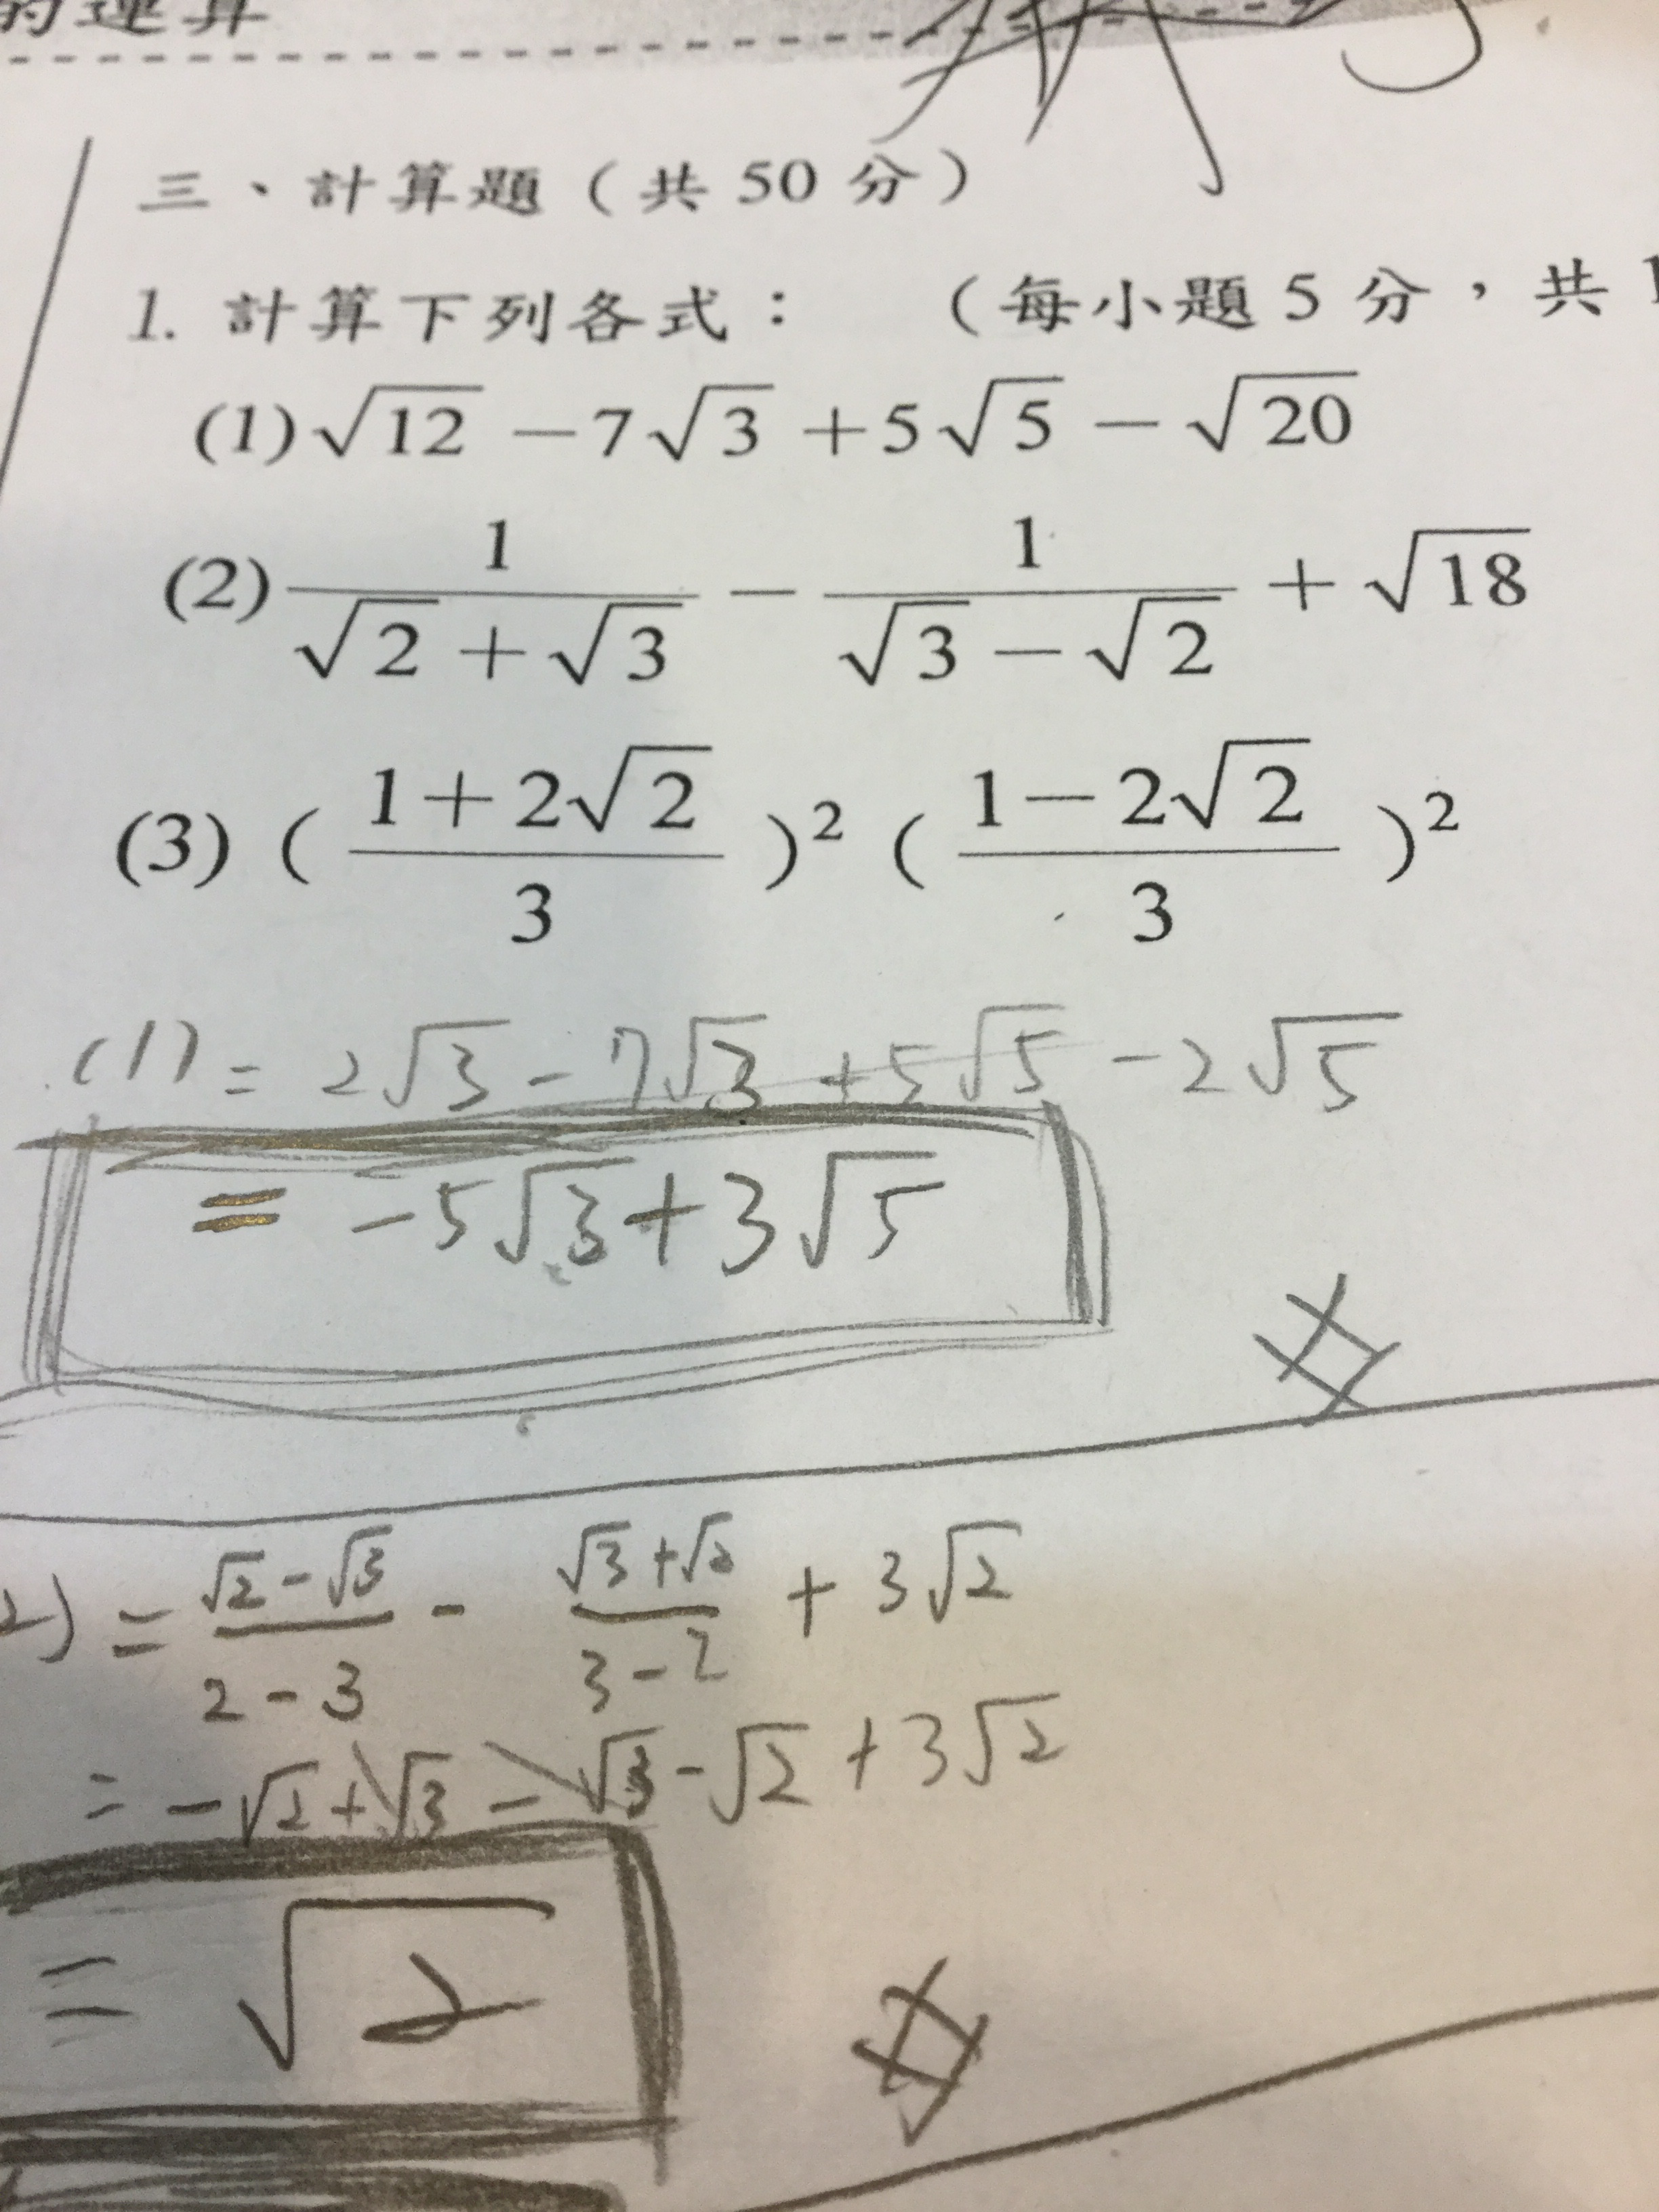 的運算
三、計算題（共 50 分）
1. 計算下列各式： （每小題 5 分，共 1
(1) √12 − 7√3 + 5√5 − √20
(2) 1/(√2 + √3) − 1/(√3 − √2) + √18
(3) ( (1 + 2√2)/3 )² ( (1 − 2√2)/3 )²
(1) = 2√3 − 7√3 + 5√5 − 2√5
= −5√3 + 3√5
2) = (√2 − √3)/(2 − 3) − (√3 + √2)/(3 − 2) + 3√2
= −√2 + √3 − √3 − √2 + 3√2
= √2